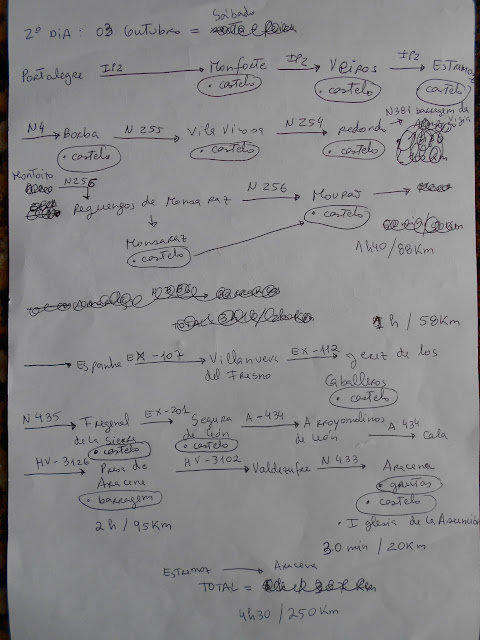 2º DIA : 03 Outubro = Sábado
Portalegre IP2 Monforte IP2 Veiros IP2 ESTREMOZ
• castelo • castelo • castelo
N4 Borba N 255 Vila Viçosa N 254 Redondo N381 barragem da Vigia
• castelo • castelo • castelo
Montoito
N256 Reguengos de Monsaraz N 256 Mourão
• castelo
Monsaraz
• castelo
1h40 / 88Km
1h / 58Km
Espanha EX-107 Villanueva del Fresno EX-112 Jerez de los Caballeros
• castelo
N435 Fregenal de la Sierra EX-201 Segura de León A-434 Arroyomolinos de León A 434 Cala
• castelo • castelo
HV-3126 Presa de Aracena HV-3102 Valdezufre N 433 Aracena
• barragem • grutas
• castelo
• Iglesia de la Asunción
2h / 95Km
30 min / 20Km
ESTREMOZ Aracena
TOTAL =
4h30 / 250Km